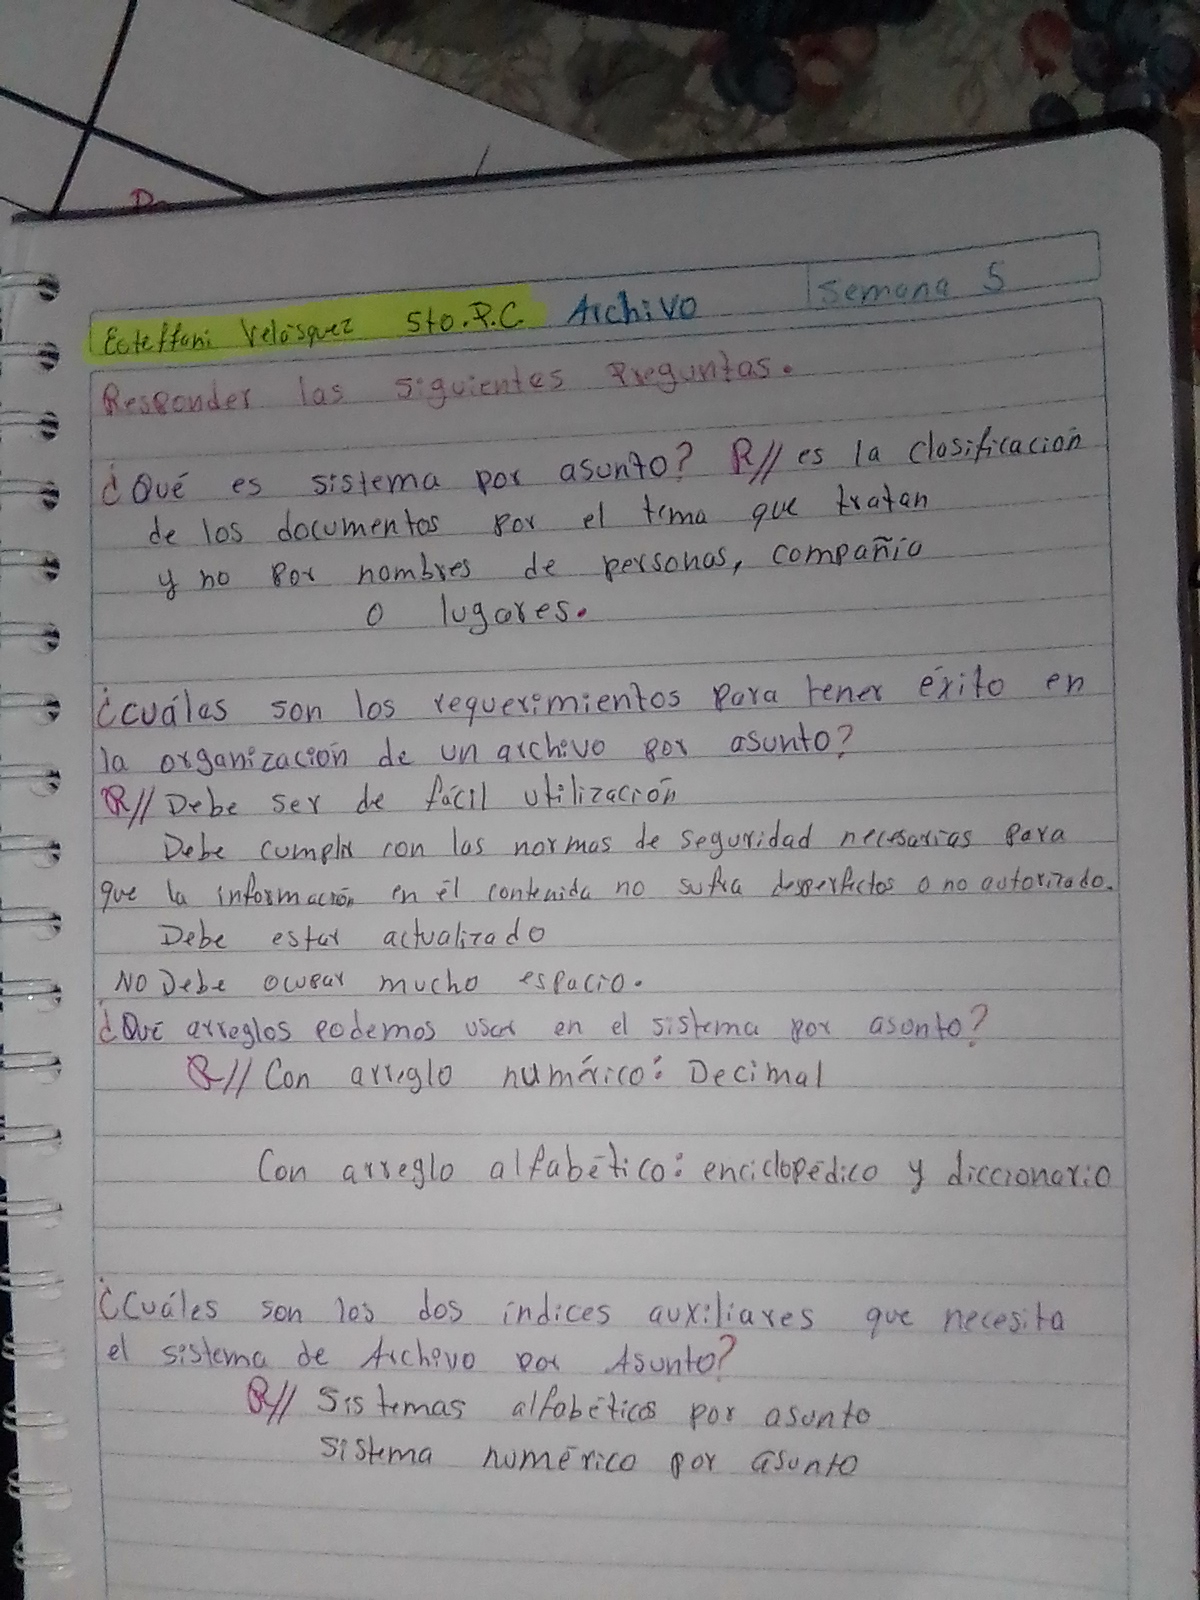 Esteffani Velásquez 5to.P.C. Archivo Semana 5
Responder las siguientes preguntas.
¿Qué es sistema por asunto? R// es la clasificación
de los documentos por el tema que tratan
y no por nombres de personas, compañía
o lugares.
¿cuáles son los requerimientos para tener éxito en
la organización de un archivo por asunto?
R// Debe ser de fácil utilización
Debe cumplir con las normas de seguridad necesarias para
que la información en él contenida no sufra desperfectos o no autorizado.
Debe estar actualizado
NO Debe ocupar mucho espacio.
¿Qué arreglos podemos usar en el sistema por asunto?
R// Con arreglo numérico: Decimal
Con arreglo alfabético: enciclopédico y diccionario
¿Cuáles son los dos índices auxiliares que necesita
el sistema de Archivo por Asunto?
R// Sistemas alfabéticos por asunto
Sistema numérico por asunto